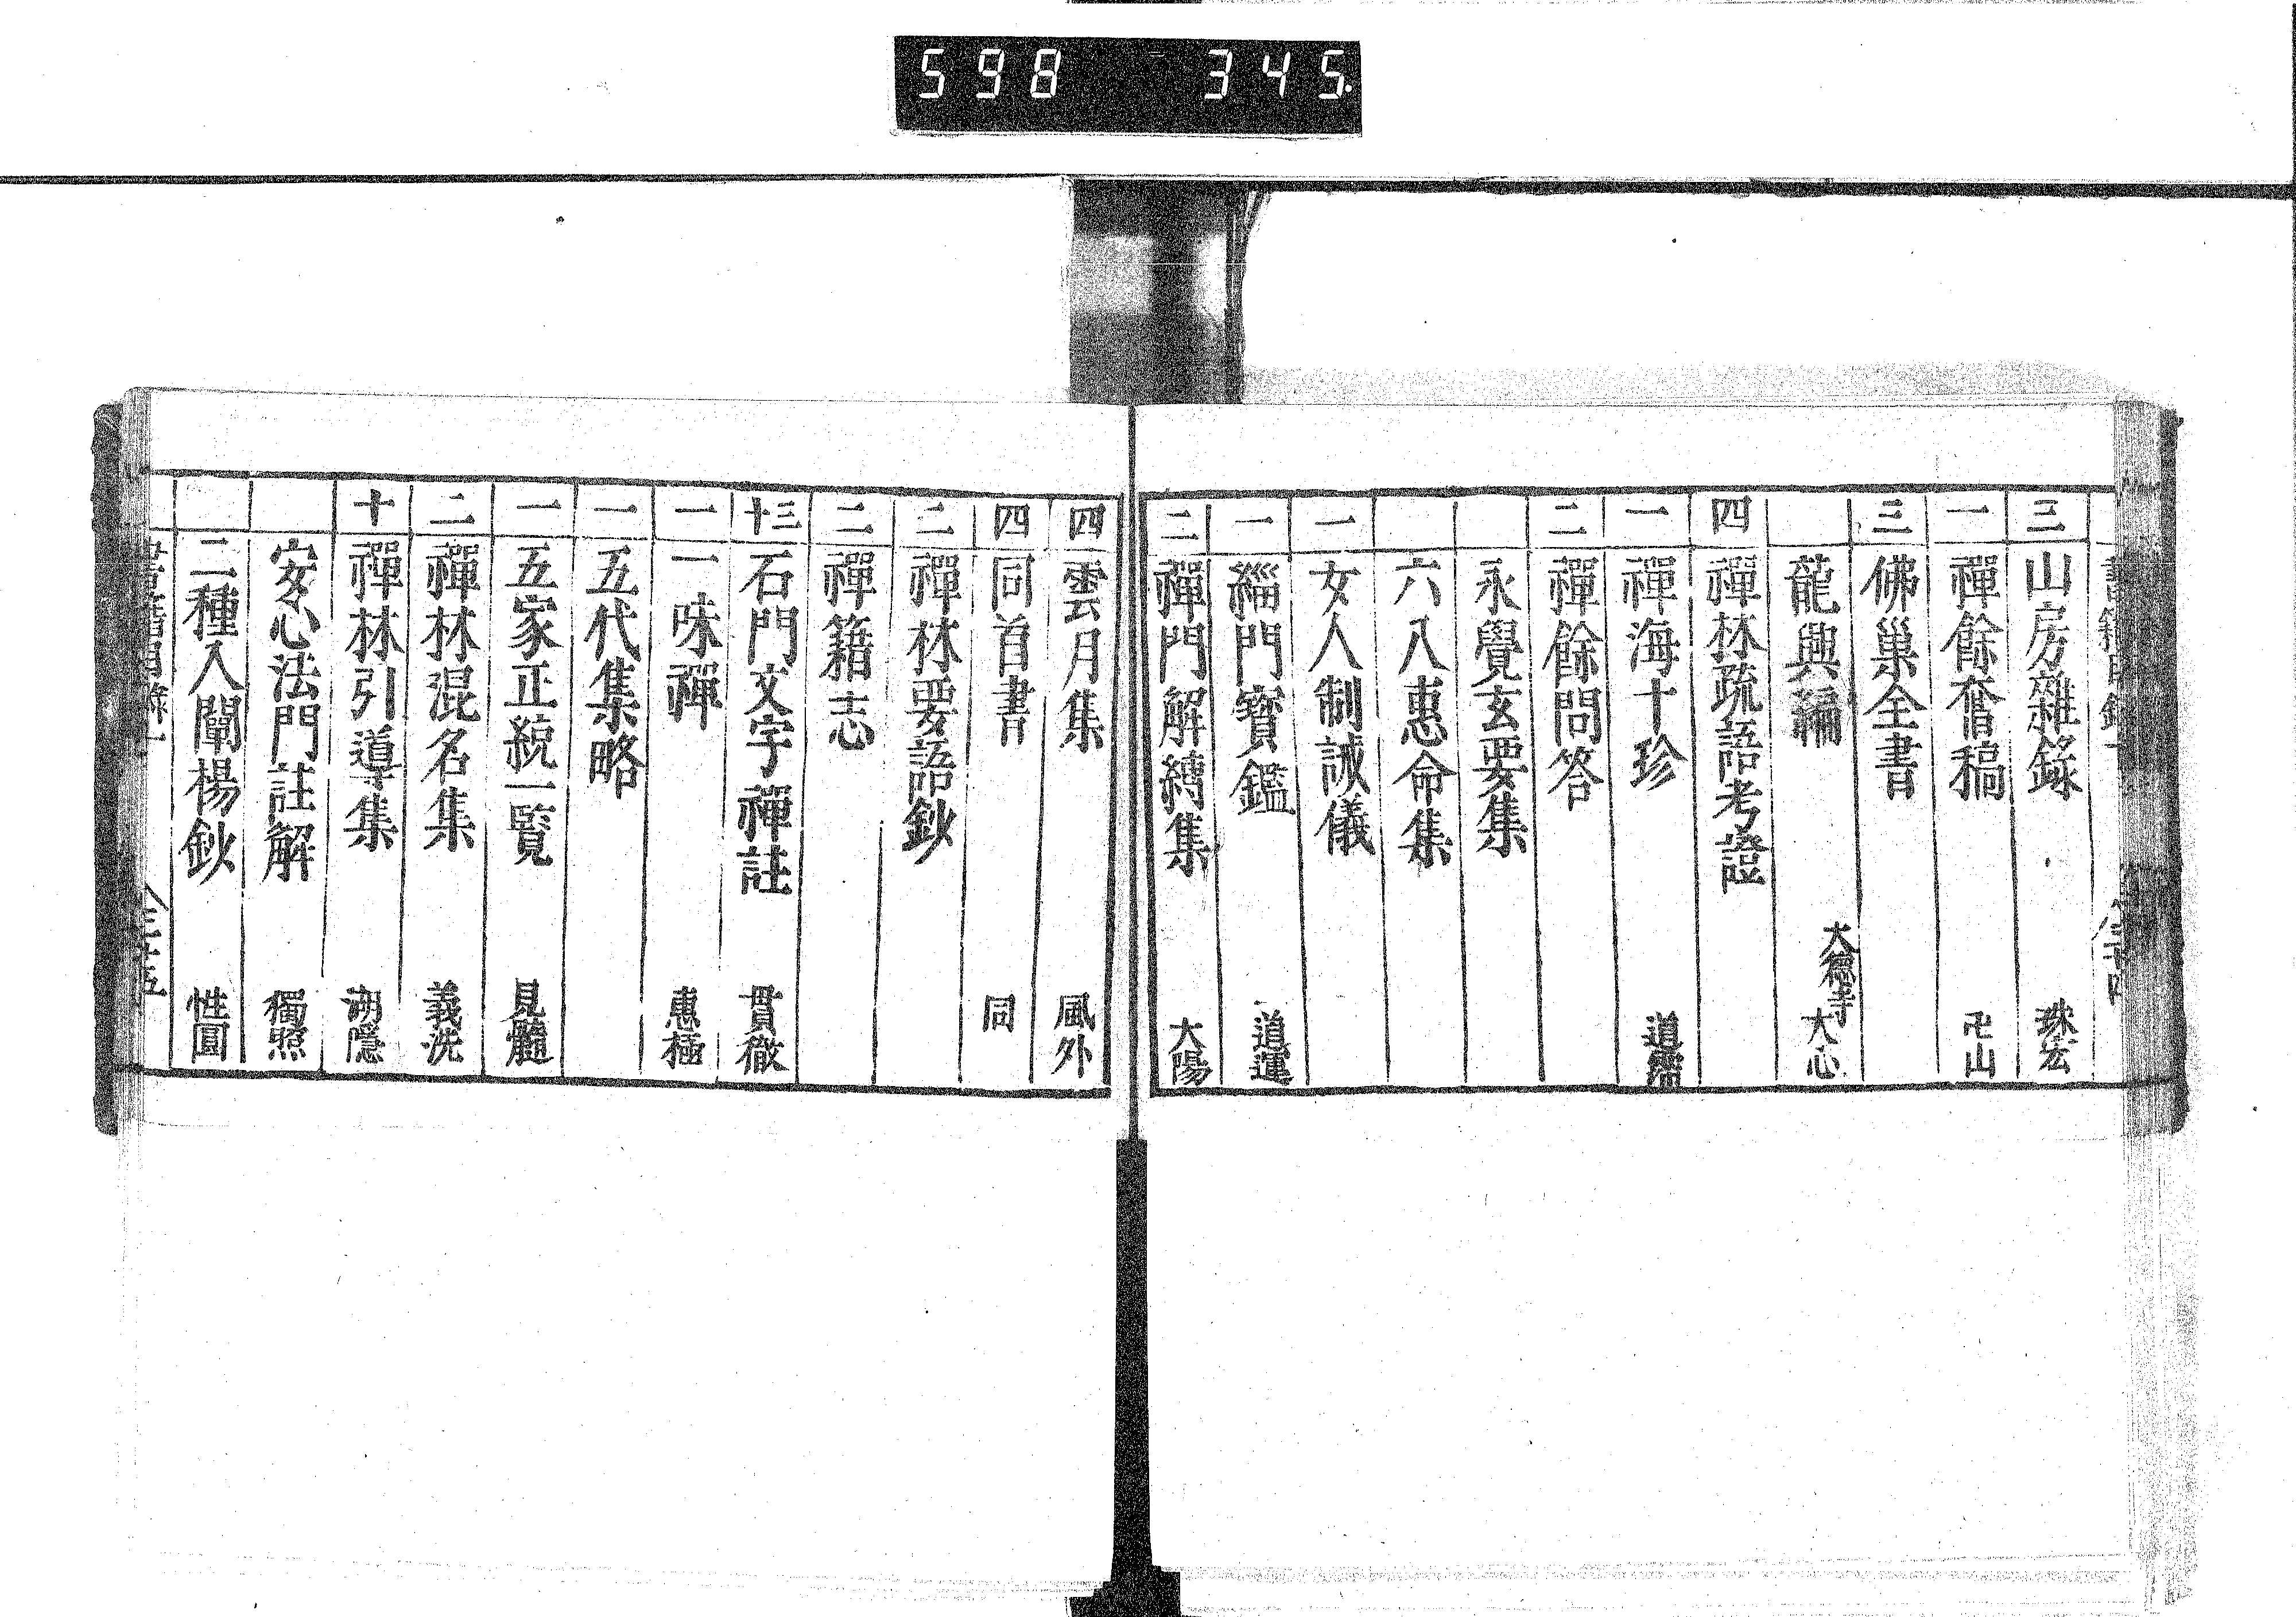 598 345.
三 山房雜錄 珠宏
一 禪餘套稿 卍山
三 佛巢全書
龍興編 大德寺 大心
四 禪林疏語考證
一 禪海十珍 道霈
二 禪餘問答
永覺玄要集
六八惠命集
一 女人制誡儀
一 緇門寳鑑 道運
二 禪門解縛集 大陽
四 雲月集 風外
四 同首書 同
二 禪林要語鈔
二 禪籍志
十三 石門文字禪註 貫徹
一 一味禪 惠極
一 五代集略
一 五家正統一覧 見髓
二 禪林混名集 義洗
十 禪林引導集 湖隱
安心法門註解 獨照
二種入闡楊鈔 性圓